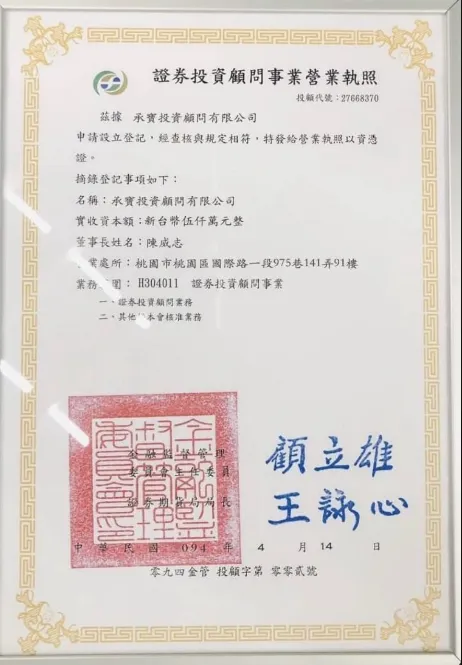 證券投資顧問事業營業執照
投顧代號：27668370
茲據 承寶投資顧問有限公司
申請設立登記，經查核與規定相符，特發給營業執照以資憑
證。
摘錄登記事項如下：
名稱：承寶投資顧問有限公司
實收資本額：新台幣伍仟萬元整
董事長姓名：陳威志
業處所：桃園市桃園區國際路一段975巷141弄91樓
業務 圍： H304011 證券投資顧問事業
一、證券投資顧問業務
二、其他 本會核准業務
金融監督管理
委員會主任委員
證券期貨局局長
顧立雄
王詠心
中華民國 094 年 4 月 14 日
零九四金管 投顧字第 零零貳號